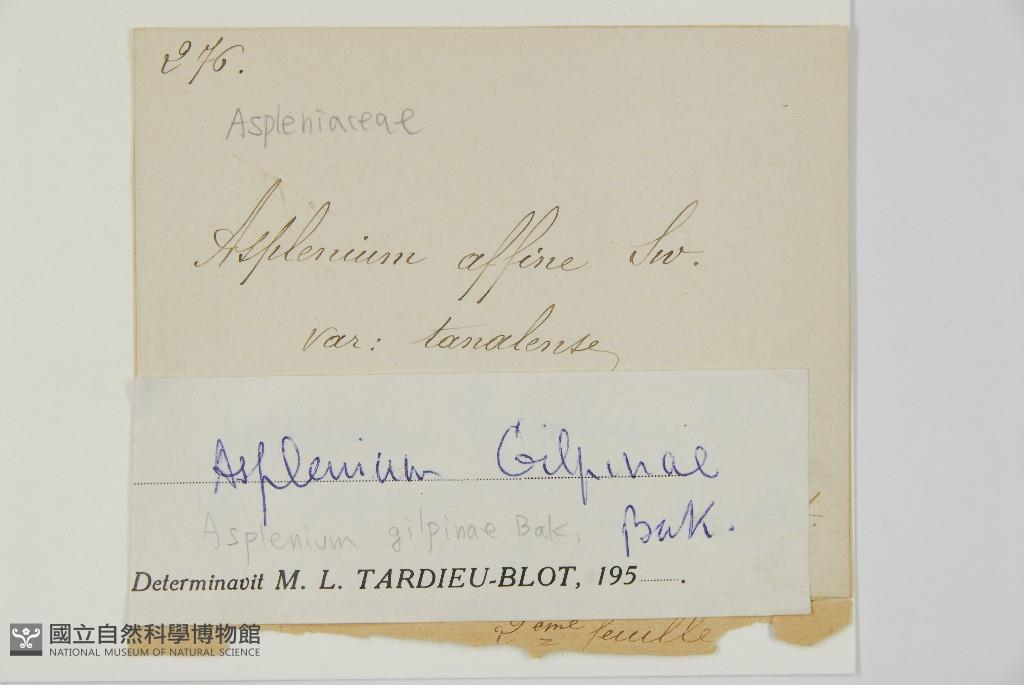 276.
Aspleniaceae
Asplenium affine Sw.
var: tanalense
Asplenium Gilpinae
Asplenium gilpinae Bak.
Bak.
Determinavit M. L. TARDIEU-BLOT, 195.......
2eme feuille
國立自然科學博物館
NATIONAL MUSEUM OF NATURAL SCIENCE